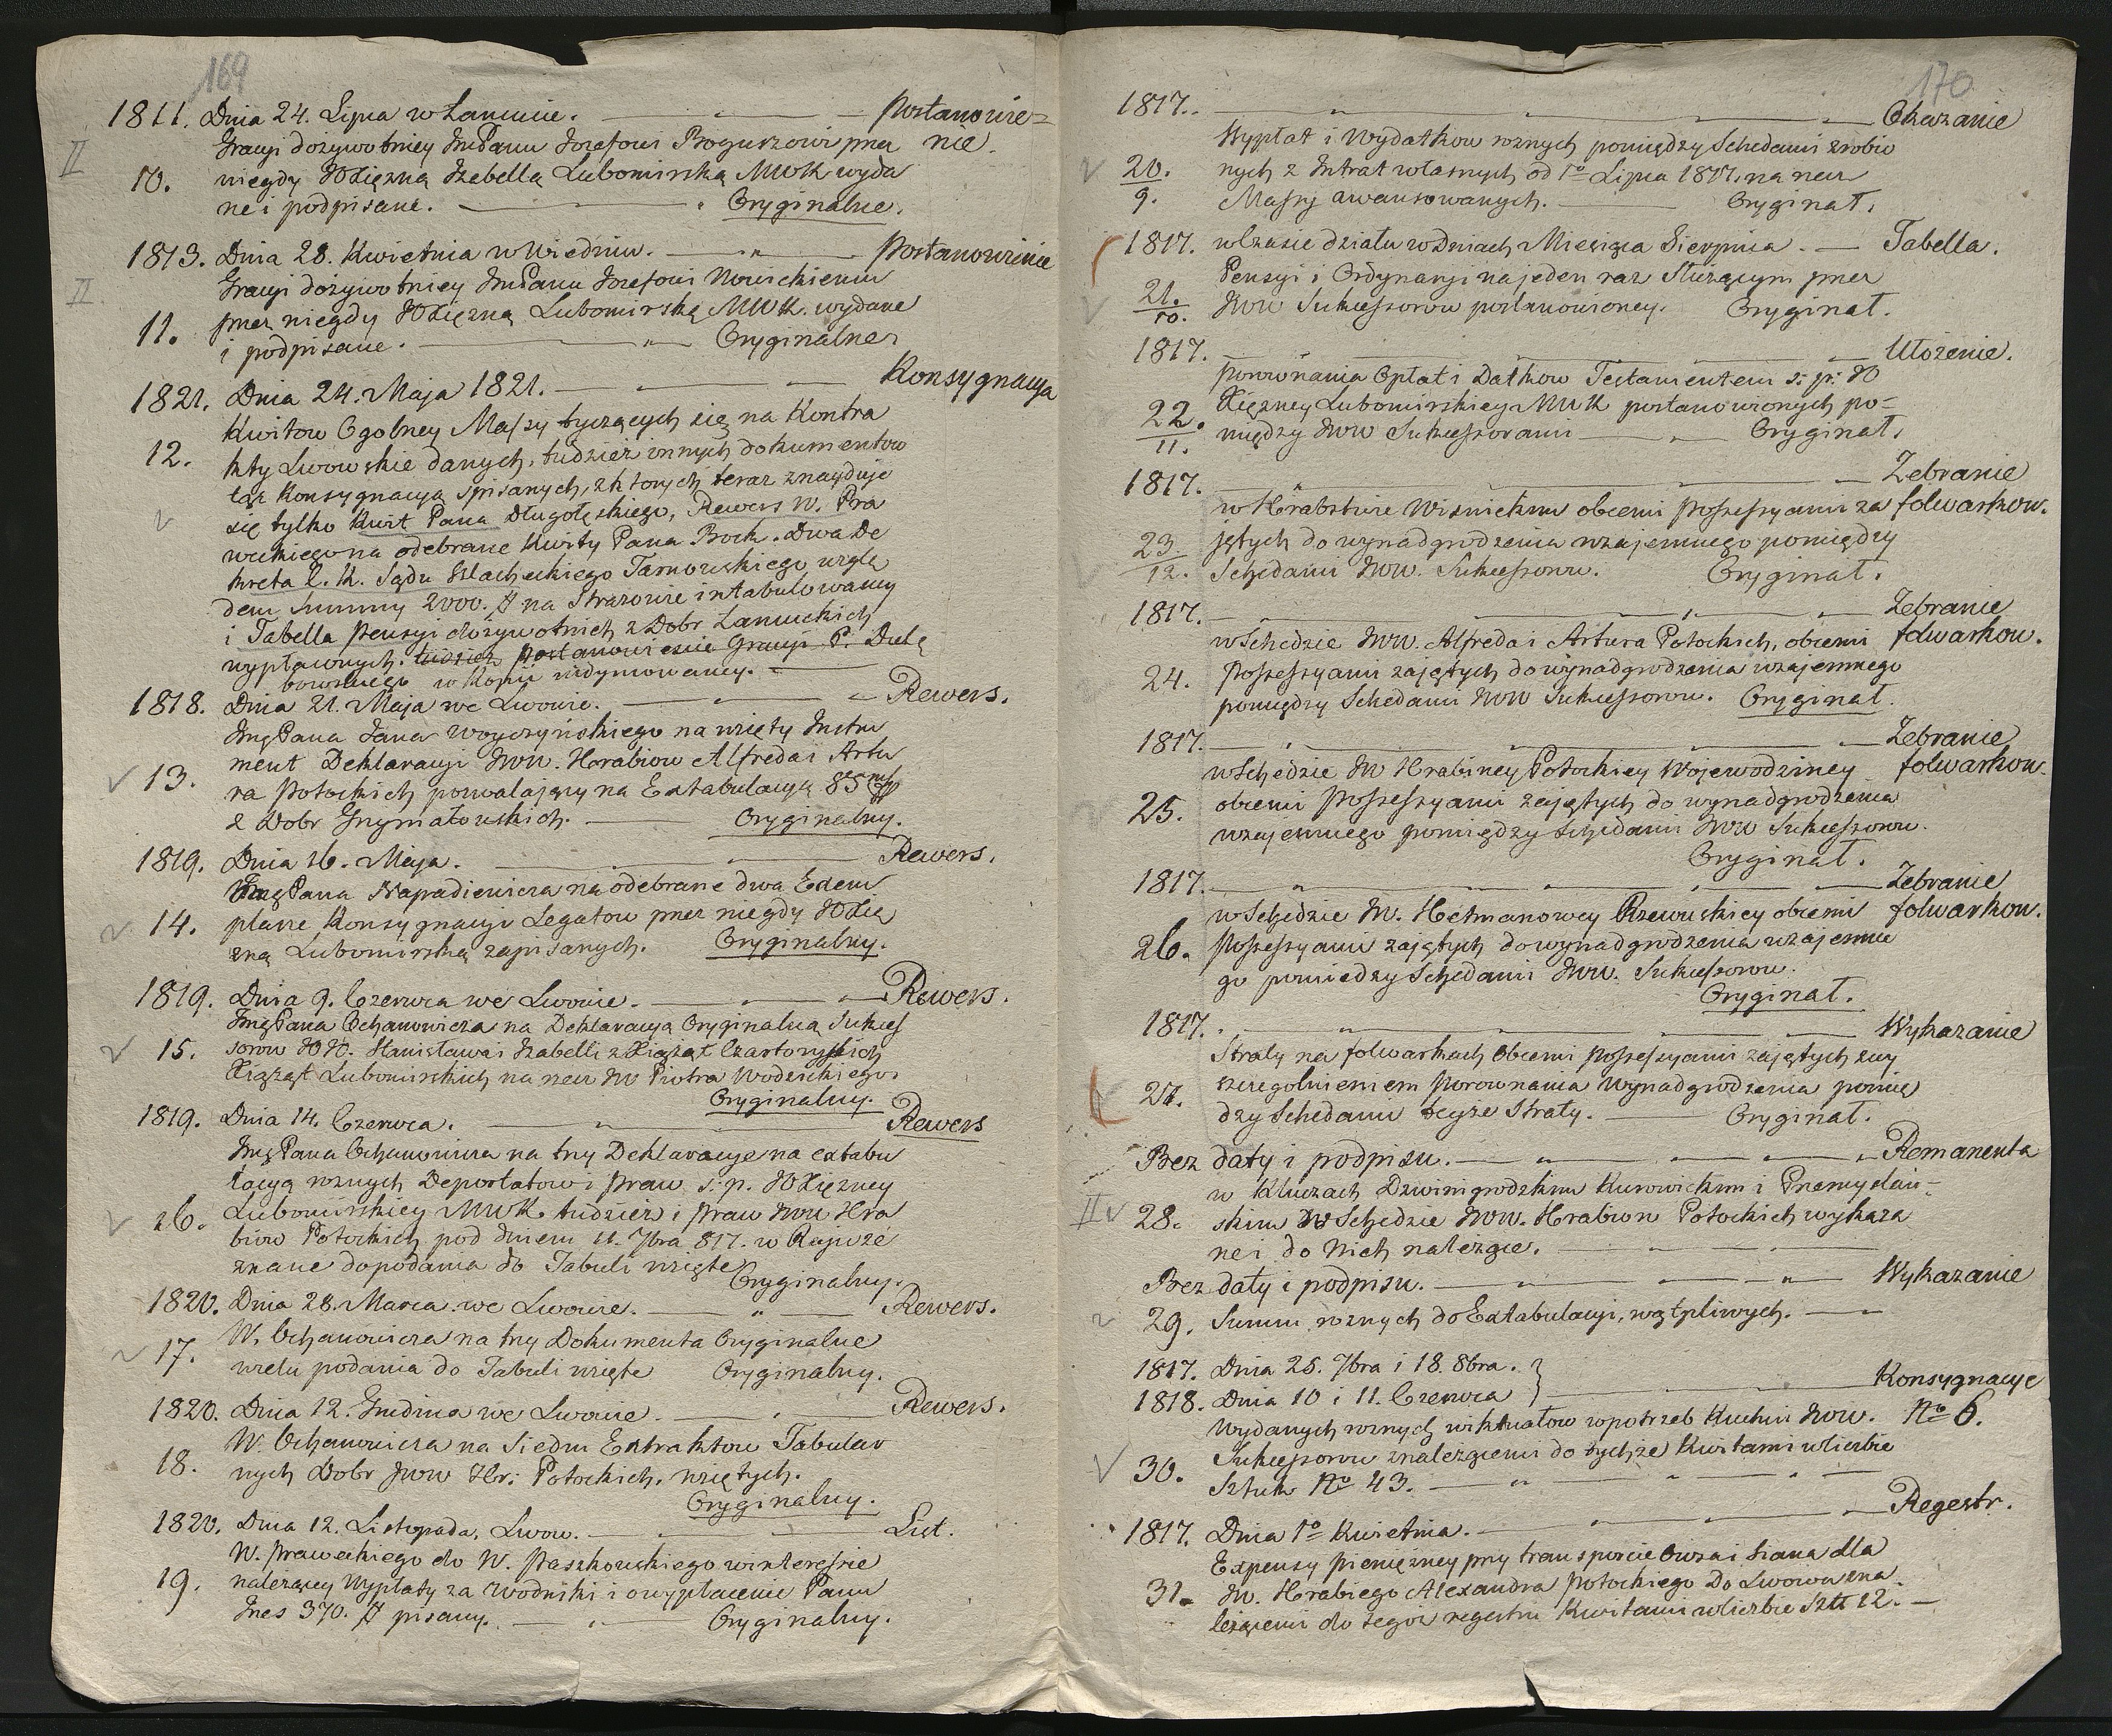 169
1811. Dnia 24. Lipca w Łancucie. Postanowie=
Gracyi dożywotniey JmPanu Jozefowi Boguszowi przez nie.
II 10. niegdy JO Xiężną Izabellę Lubomirską MWK wyda
ne i podpisane. Oryginalne.
1813. Dnia 28. Kwietnia w Wiedniu. Postanowienie
Gracyi dożywotniey JmPanu Jozefowi Nowickiemu
II. 11. przez niegdy JO Xiężną Lubomirską MWK. wydane
i podpisane. Oryginalne
1821. Dnia 24. Maja 1821. Konsygnacya
Kwitow Ogolney Massy tyczących się na Kontra
12. kty Lwowskie danych, tudzież innych dokumentow
tąż Konsygnacyą spisanych, z ktorych teraz znayduje
się tylko Kwit Pana Długołęskiego, Rewers W. Pra
weckiego na odebrane Kwity Pana Bock. Dwa De
kreta C. K. Sądu Szlacheckiego Tarnowskiego wzglę
dem Summy 2000. # na Strazowie intabulowaney
i Tabella Pensyi dożywotnich z Dobr Łancuckich
wypłacanych. tudzież postanowienie Gracyi P. Dulę
bowskiego w Kopii vidymowaney.
1818. Dnia 21. Maja we Lwowie. Rewers.
JmgPana Jana Woyczyńskiego na wzięty Instru
ment Deklaracyi JWW. Hrabiow Alfreda i Artu
13. ra Potockich pozwalający na Extabulacyą 85
z Dobr Grzymałowskich. Oryginalny.
1819. Dnia 26. Maja. Rewers.
JmgPana Napadiewicza na odebrane dwa Exem
14. plarze Konsygnacyi Legatow przez niegdy JO Xię
zną Lubomirską zapisanych. Oryginalny.
1819. Dnia 9. Czerwca we Lwowie. Rewers.
JmgPana Ochanowicza na Deklaracyą Oryginalną Sukces
15. sorow JOO. Stanisława i Izabelli z Xiążąt Czartoryskich
Xiążąt Lubomirskich na rzecz JW Piotra Wodzickiego.
Oryginalny.
1819. Dnia 14. Czerwca. Rewers
JmgPana Ochanowicza na trzy Deklaracye na extabu
lacyą roznych Deportatow i praw s. p. JO Xiężney
16. Lubomirskiey MWK. tudzież i praw JWW Hra
biow Potockich pod dniem 11. 7bra 817. w Rzyw ze
znane do podania do Tabuli wzięte Oryginalny.
1820. Dnia 28. Marca. we Lwowie. Rewers.
W. Ochanowicza na trzy Dokumenta Oryginalne
17. w celu podania do Tabuli wzięte Oryginalny.
1820. Dnia 12. Grudnia we Lwowie. Rewers.
W. Ochanowicza na Siedm Extraktow Tabular
18. nych Dobr JWW Hr: Potockich. wziętych.
Oryginalny.
1820. Dnia 12. Listopada, Lwow. List.
W. Praweckiego do W. Paszkowskiego w interessie
19. należącey Wypłaty za Wodniki i o wypłacenie Panu
370. # pisany. Oryginalny.
170
1817. Okazanie
Wypłat i Wydatkow roznych pomiędzy Schedami zrobio
20. nych z Intrat własnych od 1o Lipca 1817. na rzecz
9. Massy awansowanych. Oryginał.
1817. w Czasie działu w Dniach Miesiąca Sierpnia. Tabella.
Pensyi i Ordynaryi na jeden raz Służącym przez
21. 10. JWW Sukcessorow postanowioney. Oryginał.
1817. Ułożenie.
porownania Opłat i Datkow Testamentem s: p: JO
22. Xiężney Lubomirskiey MWK postanowionych po=
11. między JWW Sukcessorami Oryginał.
1817. Zebranie
w Hrabstwie Wisnickim obcemi possessyami za folwarkow.
23. jętych do wynadgrodzenia wzajemnego pomiędzy
12. Schedami JWW. Sukcessorow. Oryginał.
1817. Zebranie
w Schedzie JWW. Alfreda i Artura Potockich, obcemi folwarkow.
24. possessyami zajętych do wynadgrodzenia wzajemnego
pomiędzy Schedami JWW Sukcessorow. Oryginał.
1817. Zebranie
w Schedzie JW Hrabiney Potockiey Wojewodziney folwarkow.
25. obcemi possessyami zajętych do wynadgrodzenia
wzajemnego pomiędzy Schedami JWW Sukcessorow.
Oryginał.
1817. Zebranie
w Schedzie JW. Hetmanowey Rzewuskiey obcemi folwarkow.
26. possessyami zajętych do wynadgrodzenia wzajemne
go pomiedzy Schedami JWW. Sukcessorow.
Oryginał.
1817. Wykazanie
Straty na folwarkach obcemi possessyami zajętych z wy
27. szczegolnieniem porownania wynadgrodzenia pomię
dzy Schedami teyże Straty. Oryginał.
Bez daty i podpisu. Remanenta
w Kluczach Dzwinigrodzkim Kurowickim i Przemyslań=
II 28. skim w Schedzie JWW. Hrabiow Potockich wykaza
ne i do Nich należące.
Bez daty i podpisu. Wykazanie
29. Summ roznych do Extabulacyi, wątpliwych.
1817. Dnia 25. 7bra i 18. 8bra. }
1818. Dnia 10 i 11. Czerwca } Konsygnacye
Wydanych roznych wiktuałow w potrzeb Kuchni JWW. No 6.
30. Sukcessorow z należącemi do tychże Kwitami w liczbie
Sztuk No 43.
1817. Dnia 1o Kwietnia. Regestr.
Expensy pieniężney przy transporcie Owsa i Siana dla
31. JW. Hrabiego Alexandra Potockiego do Lwowa z na
leżącemi do tegoż regestru Kwitami w liczbie Szt 12.